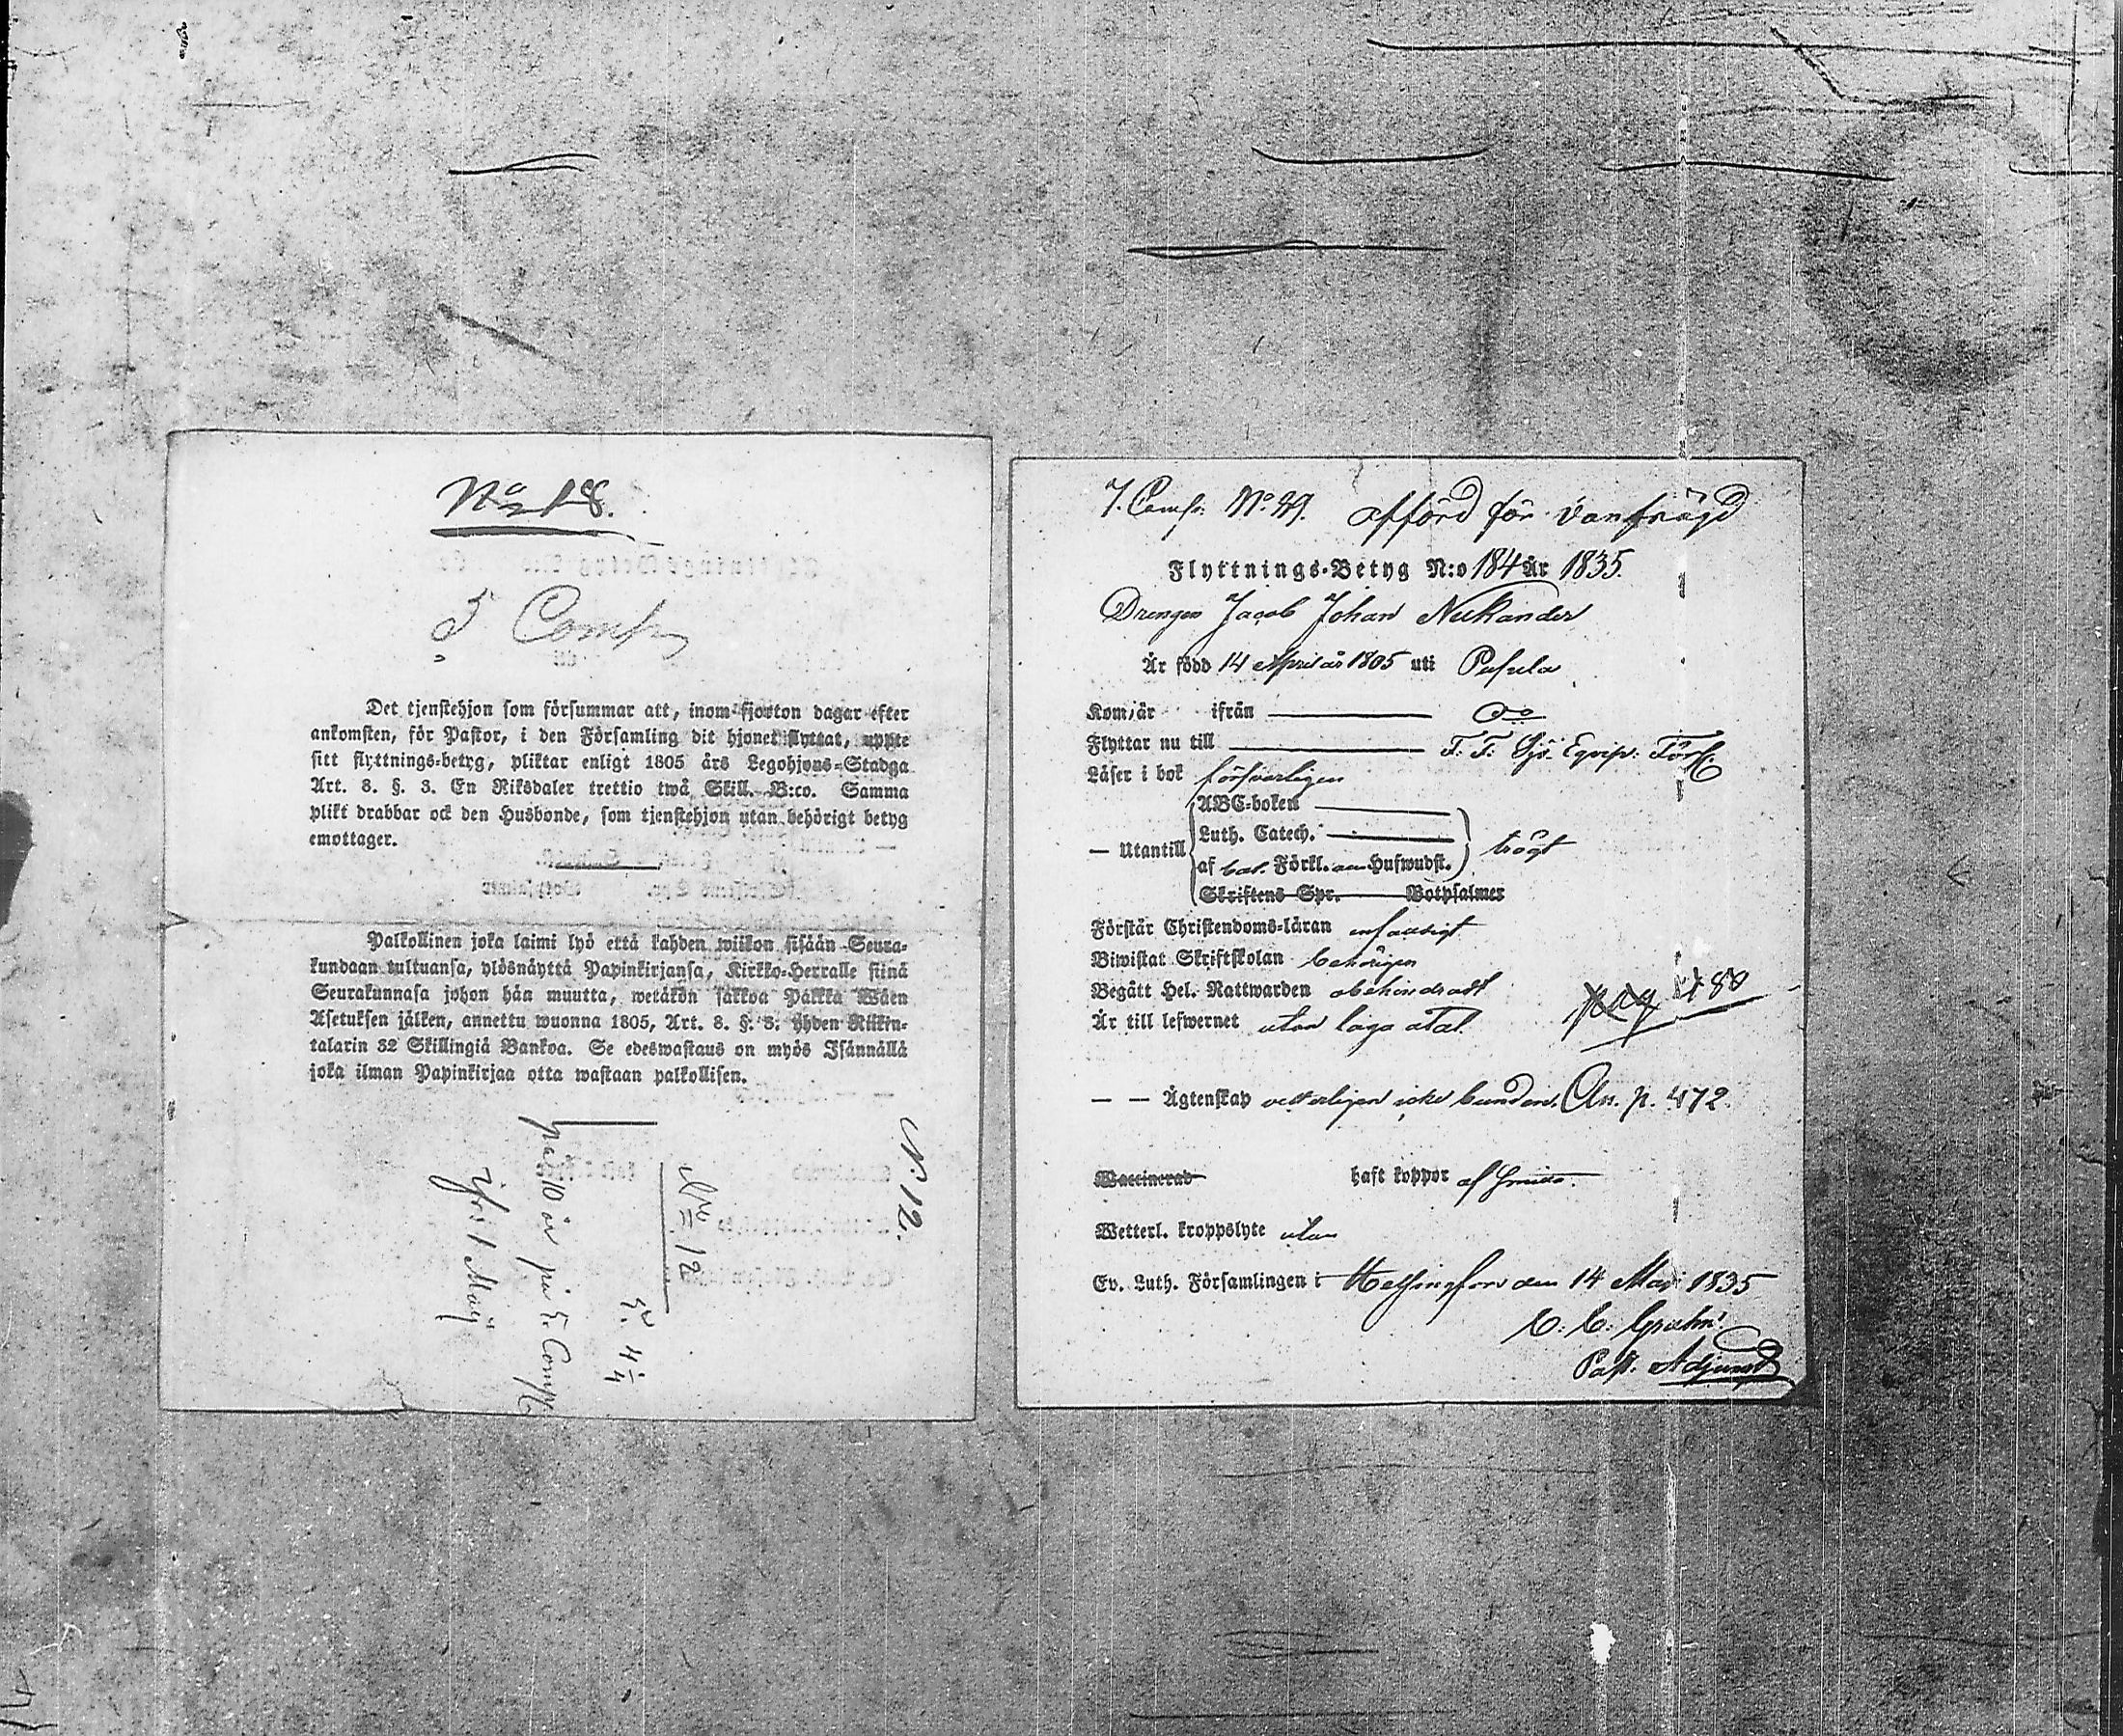 No 18.
5 Comp
Det tjenstehjon som försummar att, inom fjorton dagar efter
ankomsten, för Pastor, i den Församling dit hjonet flyttat, uppte
sitt flyttnings-betyg, pliktar enligt 1805 års Legohjons-Stadga
Art. 8. §. 3. En Riksdaler trettio twå Skill. B:co. Samma
plikt drabbar ock den Husbonde, som tjenstehjon utan behörigt betyg
emottager.
Palkollinen joka laimi lyö että kahden wiikon sisään Seura-
kundaan tultuansa, ylösnäyttä Papinkirjansa, Kirkko-Herralle siinä
Seurakunnasa johon hän muutta, wetäkön sakkoa Palkka Wäen
Asetuksen jälken, annettu wuonna 1805, Art. 8. §. 3. yhden Riikin-
talarin 32 Skillingiä Bankoa. Se edeswastaus on myös Isännällä
joka ilman Papinkirjaa otta wastaan palkollisen.
N. 12.
No 12
på 10 år på 5. Comp
1 Maij
7. Comp. No. 29. afförd för vanfrägd
Flyttnings-Betyg N:o 184 År 1835.
Drengen Jacob Johan Neckander
Är född 14 April år 1805 uti Pusula
Kom, är ifrån Do
Flyttar nu till F. F. Sjö Eqvip:
Läser i bok försvarligen
ABC-boken
Luth. Catech.
— Utantill af Förkl. Hufwudst. trögt
Skriftens Spr. Botpsalmer
Förstår Christendoms-läran enfaldigt
Biwistat Skriftskolan behörigen
Begått Hel. Nattwarden obehindradt
480
Är till lefwernet utan laga åtal.
— — Ägtenskap vetterligen icke bunden. An. p. 472.
Waccinerad haft koppor
Wetterl. kroppslyte utan
Ev. Luth. Församlingen i Helsingfors den 14 Maj 1835
C. C. Grahn.
Past. Adjunct